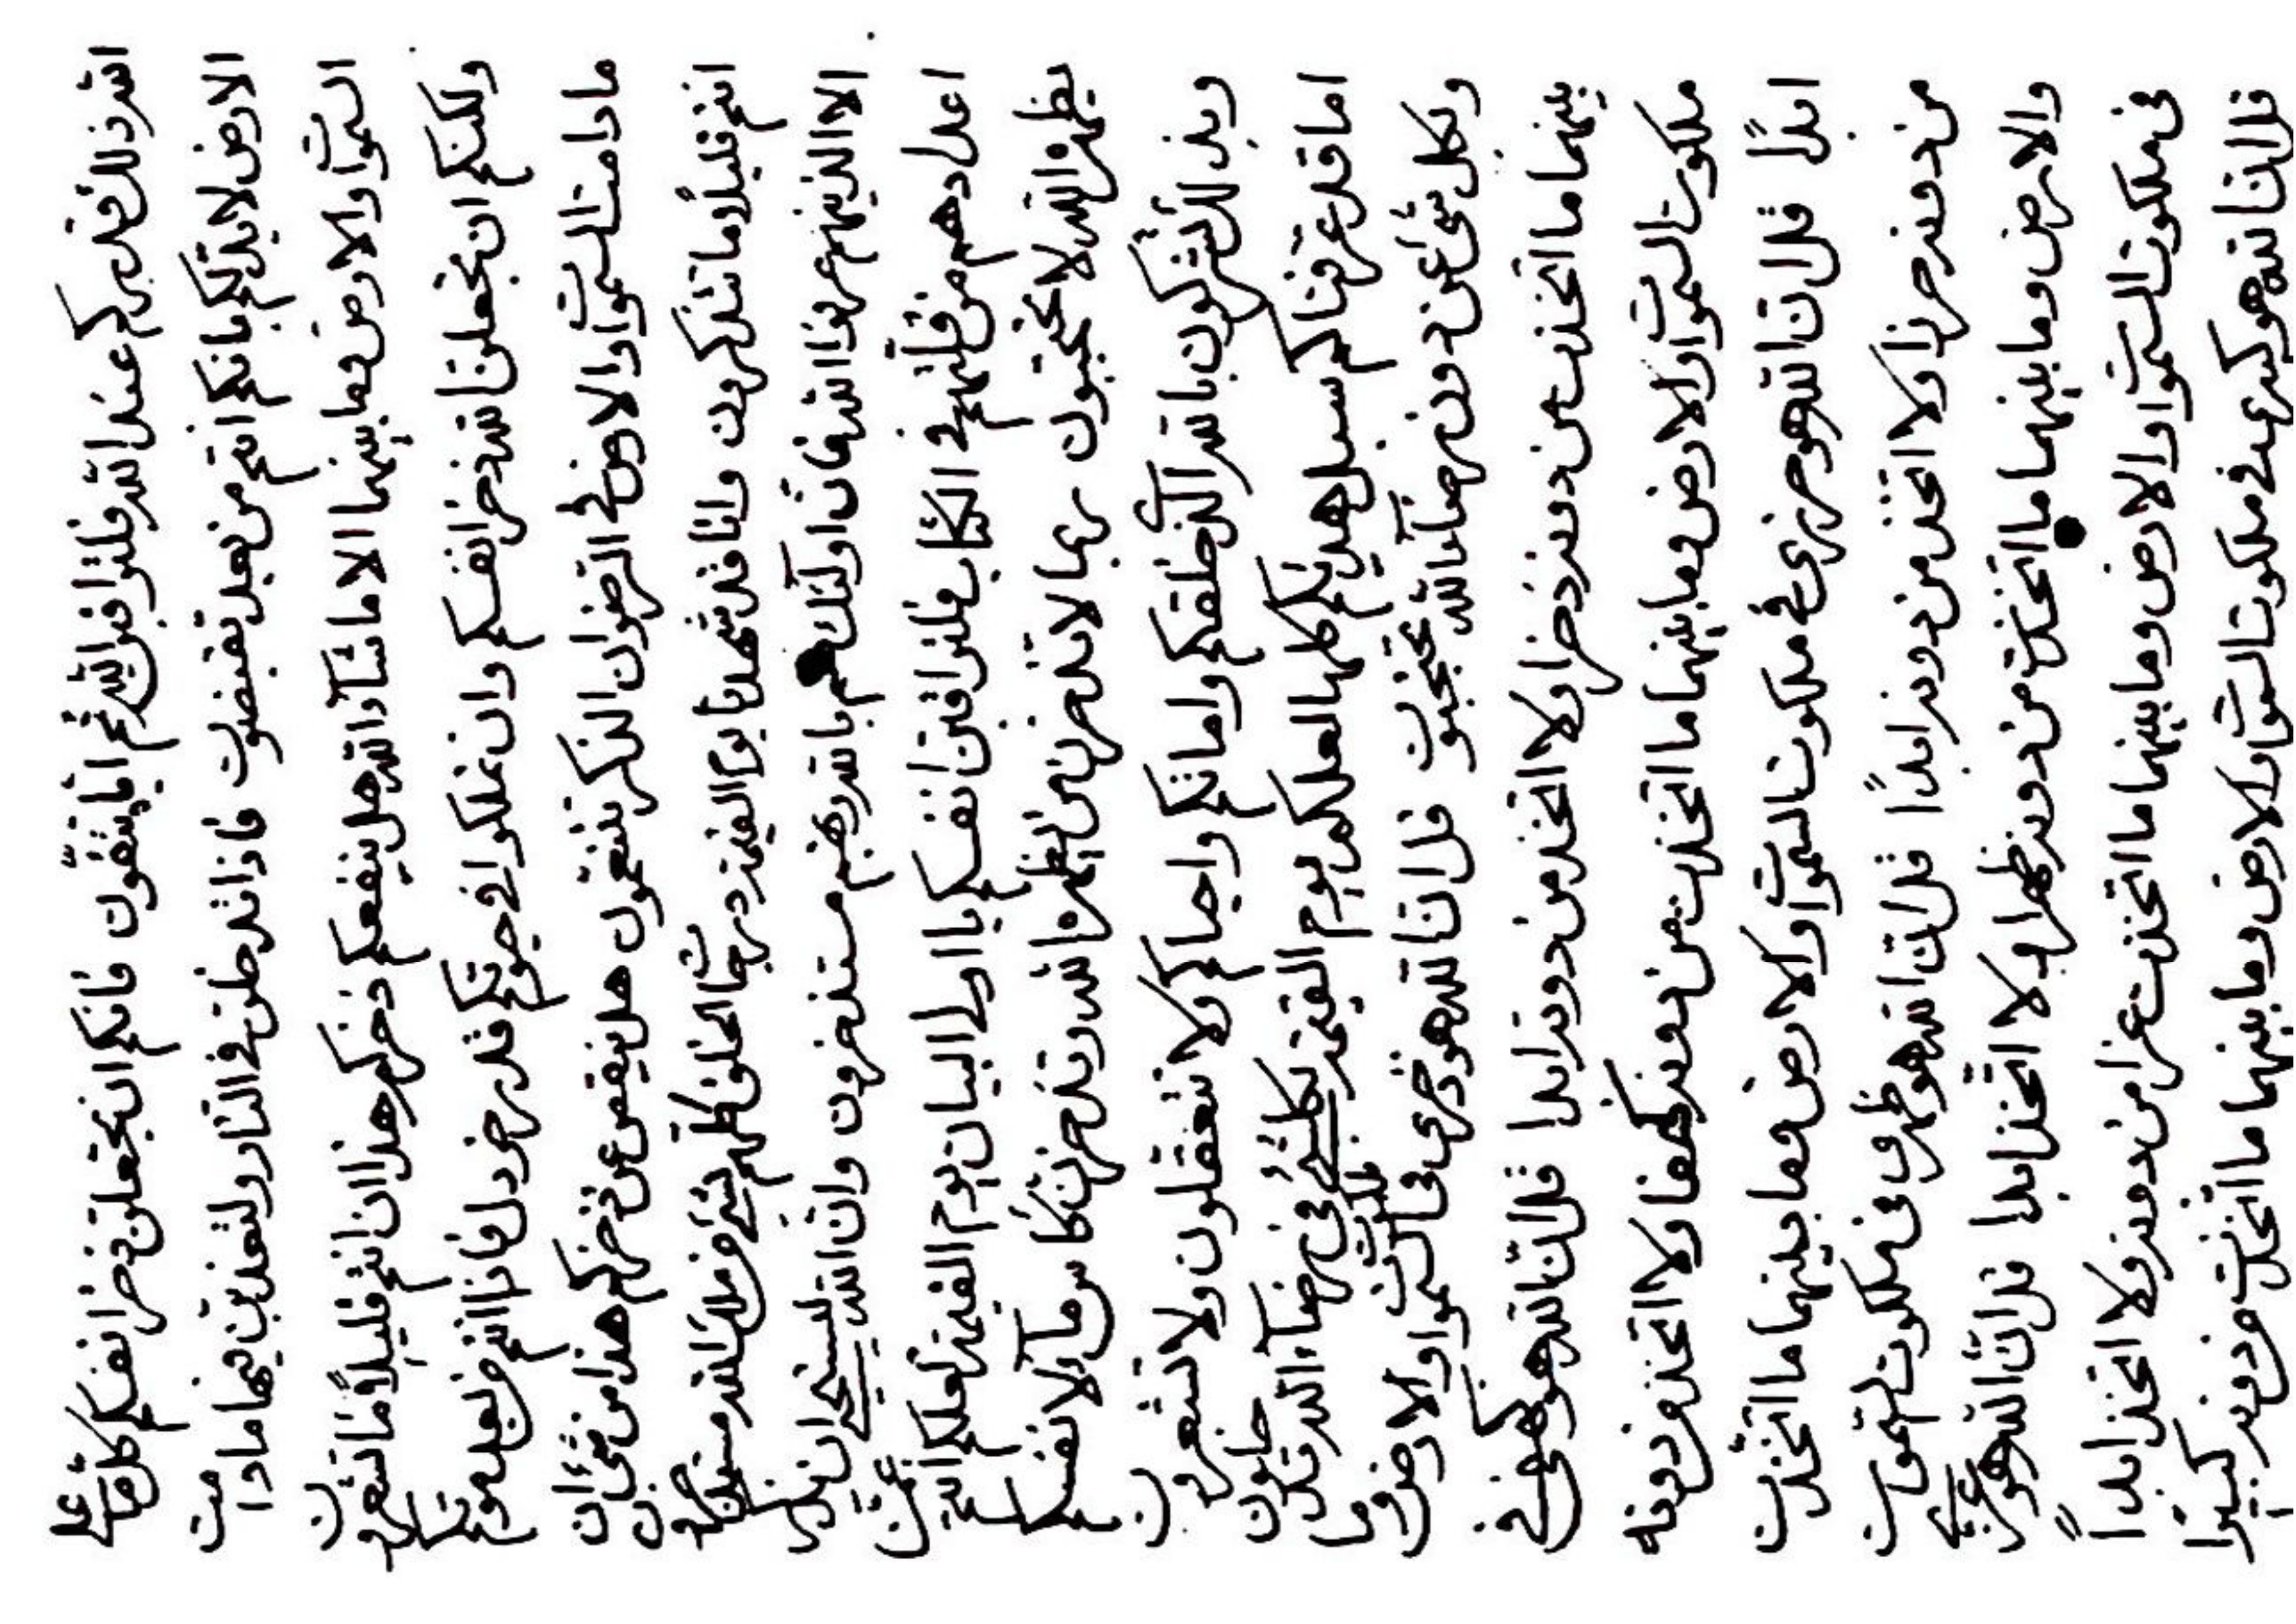 الله ذلك قدركم عند الله فلتراقبن الله ثم اياه تتقون فانكم ان تجعلن ذخر انفسكم كل ما على
الارض لا بد لكم بانكم انتم من بعد تقبضون فاذا نذر خلق في النار ولتعذبن فيها ما دامت
السموات والارض وما بينهما الا ما شآء الله هل ينفعكم ذخركم هذا ان انتم قليلًا ما تشعرون
ولكنكم ان تجعلن الله ذخر انفسكم وان تملكوا في حيوتكم قدر خردل فاذا انتم من بعد موتكم
ما دامت السموات والارض في الرضوان الذكر تتنعمون هل ينقص عن ذخركم هذا من شئ ان
انتم قليلًا ما تتذكرون وانا قد شهدنا يوم القيمة درجات الخلق كلهم بشئ من ملك الله مستذخرون
الا الذينهم عرفوا الله فان اولئك هم بالله ربهم مستذخرون وان الله ليستحيي ان يذكر
اعدادهم من قلتهم في الكتاب فلتراقبن انفسكم يا اولي البيان يوم القيمة لعلكم انتم عمن
يظهره الله لا تحتجبون ربما لا تذخرن من يظهره الله وتذخرن كاس مآء لانفسكم
وبذلك تشركون بالله الذي خلقكم واماتكم واحياكم ولا تتعقلون ولا تشعرون
اما قد عرفناكم سبل هديكم كلها لعلكم يوم القيمة بكلشئ في رضآء الله تدخلون
وبكل شئ عن دون رضآء الله تحتجبون قل ان الله هو ذخري في السموات والارض وما
بينهما ما اتخذت من دونه ذخرا ولا اتخذ من دونه ابدا قل ان الله هو كهفي في
ملكوت السموات والارض وما بينهما ما اتخذت من دونه كهفا ولا اتخذ من دونه
ابدًا قل ان الله هو حرزي في ملكوت السموات والارض وما بينهما ما اتخذت
من دونه حرزا ولا اتخذ من دونه ابدًا قل ان الله هو ظهري في ملكوت السموات
والارض وما بينهما ما اتخذت من دونه ظهرا ولا اتخذ ابدا قل ان الله هو عزي
في ملكوت السموات والارض وما بينهما ما اتخذت عزا من دونه ولا اتخذ ابدًا
قل ان الله هو كبرى في ملكوت السموات والارض وما بينهما ما اتخذت من دونه كبيرا